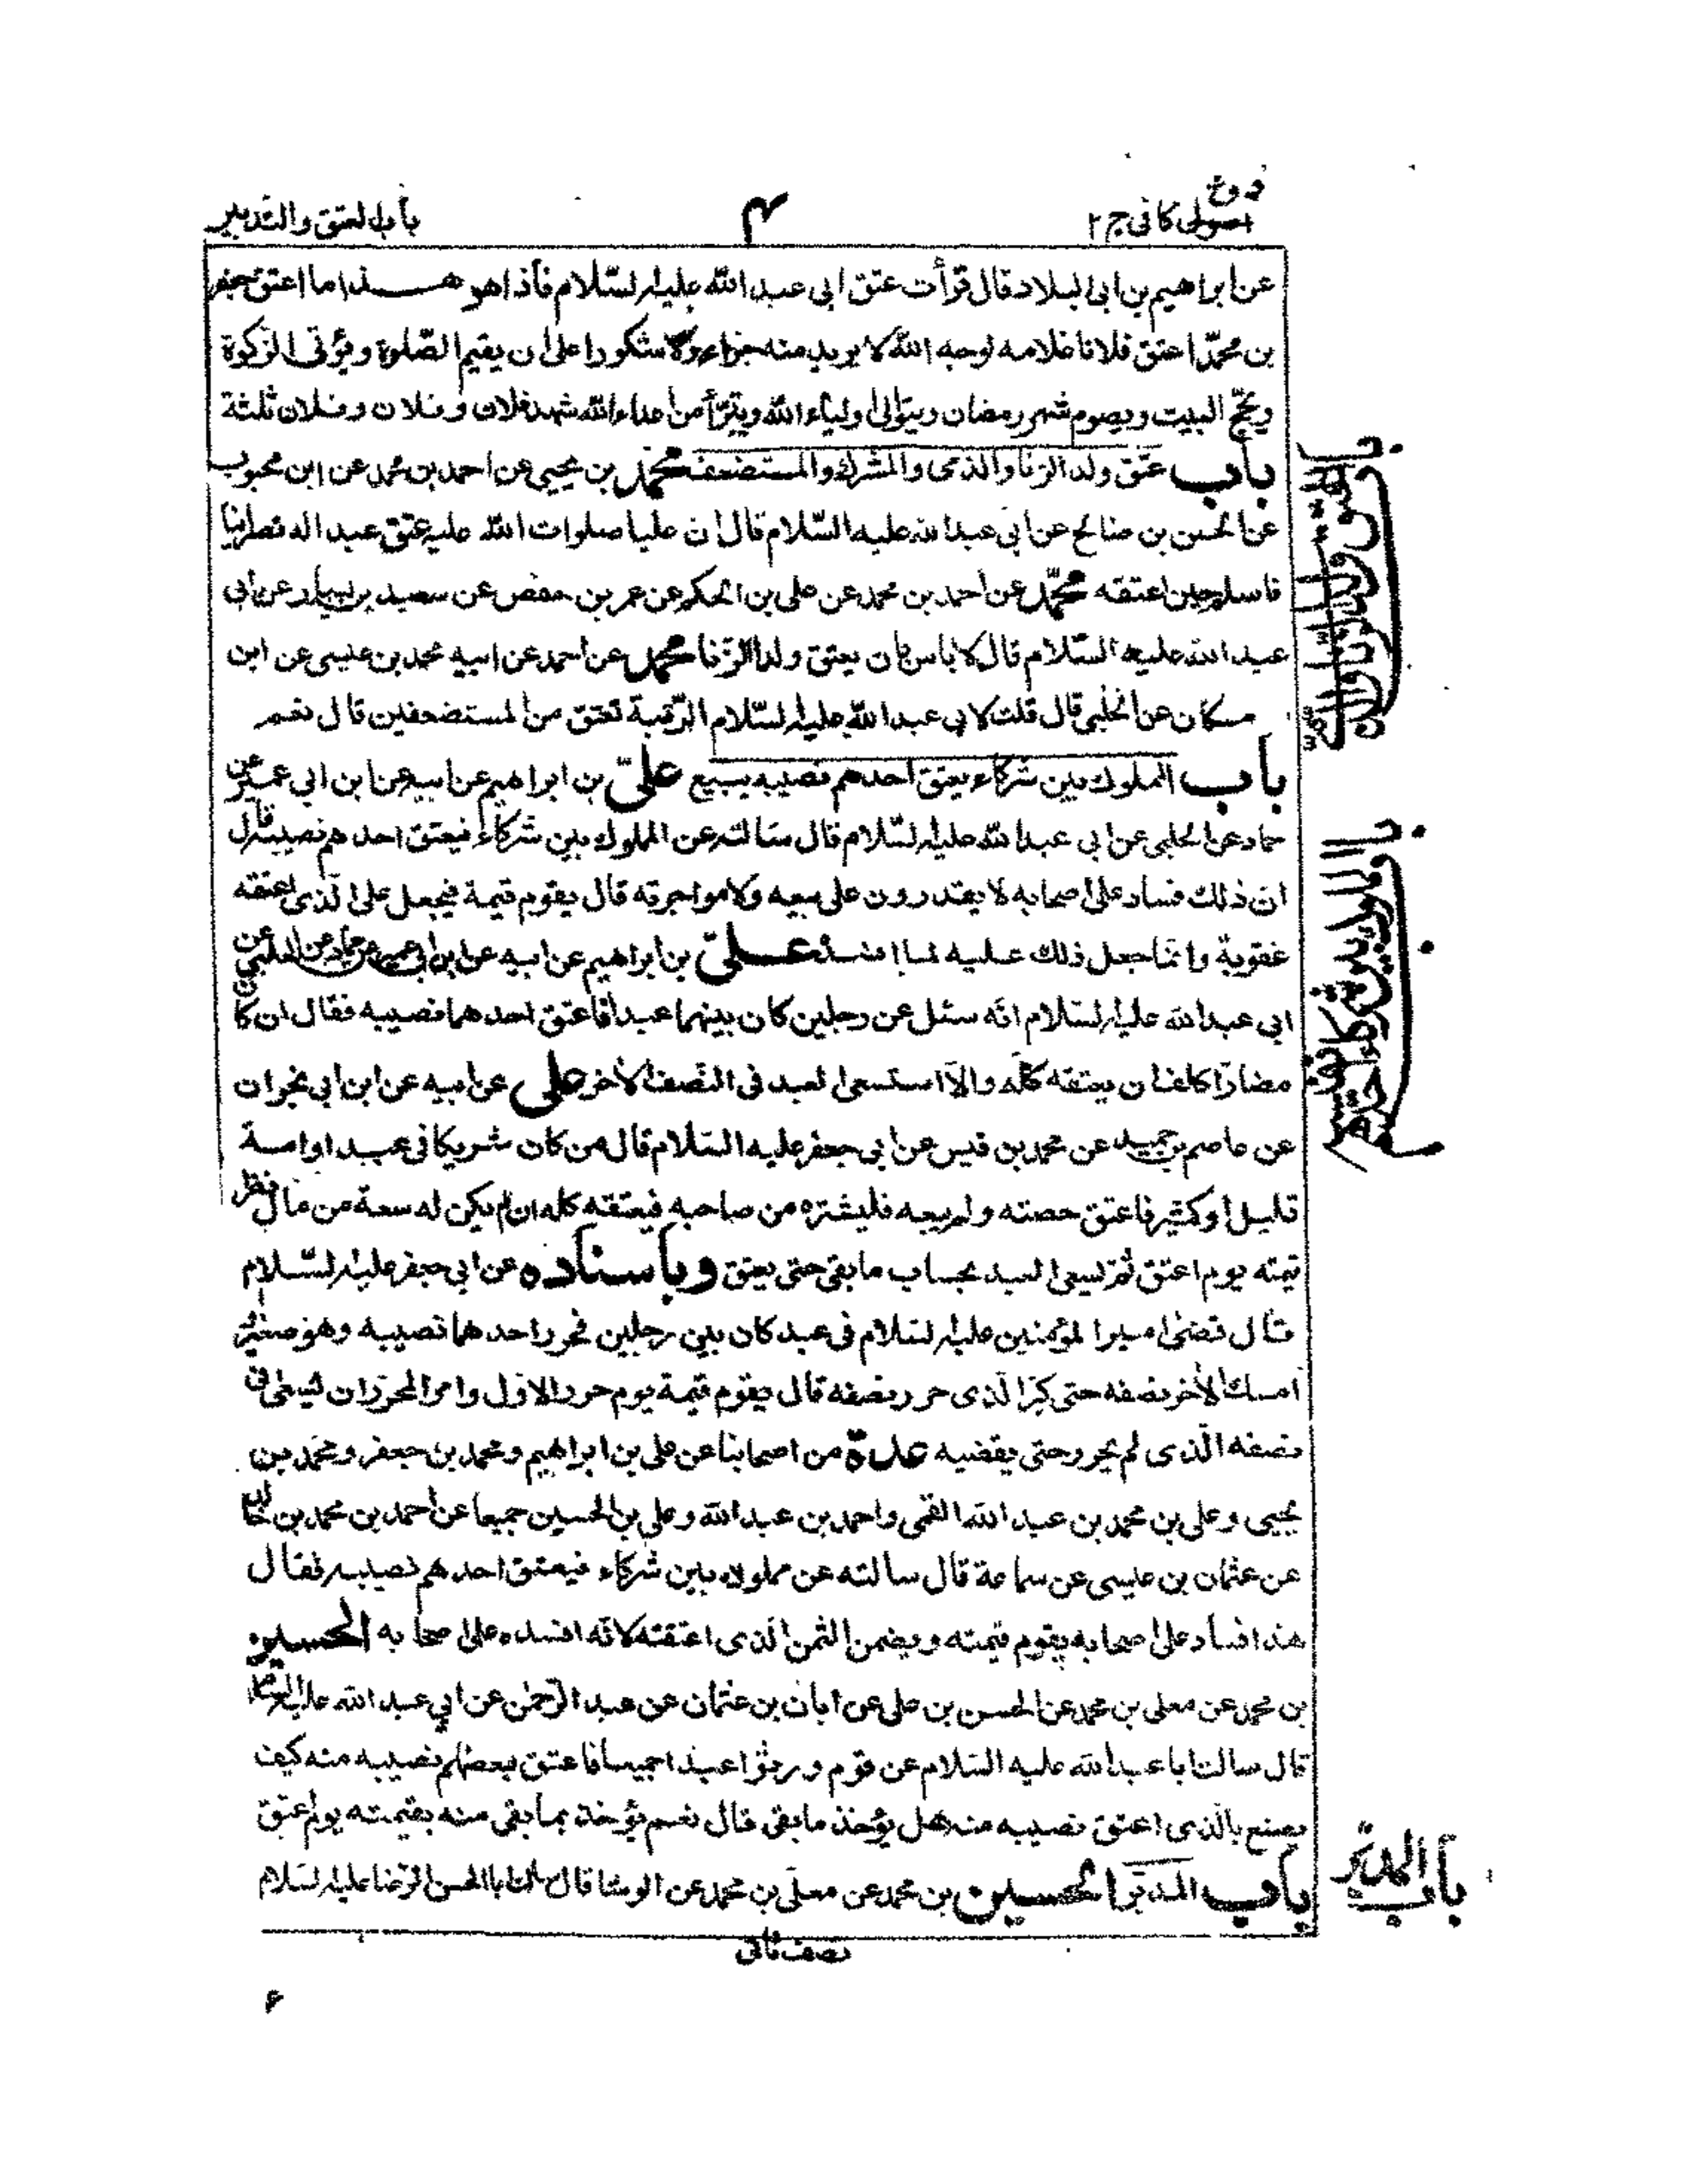 فروع
اصول كافى ج ٢
٤
باب العتق والتدبير
عن ابراهيم بن ابى البلاد قال قرأت عتق ابى عبد الله عليه السّلام فاذا هو هذا ما اعتق جعفر
بن محمّد اعتق فلانا غلامه لوجه الله لا يريد منه جزاء ولا شكورا على ان يقيم الصّلوة ويؤتى الزكوة
ويحجّ البيت ويصوم شهر رمضان ويتوالى اولياء الله ويتبرّأ من اعداء الله شهد فلان وفلان وفلان ثلثة
باب عتق ولد الزنا والذمى والمشرك والمستضعف محمّد بن يحيى عن احمد بن محمد عن ابن محبوب
عن الحسن بن صالح عن ابى عبد الله عليه السّلام قال ان عليا صلوات الله عليه عتق عبدا له نصرانيا
فاسلم حين اعتقه محمّد عن احمد بن محمد عن على بن الحكم عن عمر بن حفص عن سعيد بن يسار عن ابى
عبد الله عليه السّلام قال لا باس بان يعتق ولد الزّنا محمّد عن احمد عن ابيه محمد بن عيسى عن ابن
مسكان عن الحلبى قال قلت لابى عبد الله عليه السّلام الرّقبة تعتق من المستضعفين قال نعم
باب المملوك بين شركاء يعتق احدهم نصيبه يبيع علىّ بن ابراهيم عن ابيه عن ابن ابى عمير عن
حماد عن الحلبى عن ابى عبد الله عليه السّلام قال سالته عن المملوك بين شركاء فيعتق احدهم نصيبه قال
ان ذلك فساد على اصحابه لا يقدرون على بيعه ولا مواجرته قال يقوم قيمة فيجعل على الّذى اعتقه
عقوبة وانما جعل ذلك عليه لما افسده علىّ بن ابراهيم عن ابيه عن ابن ابى عمير عن حماد عن الحلبى عن
ابى عبد الله عليه السّلام انّه سئل عن رجلين كان بينهما عبد فاعتق احدهما نصيبه فقال ان كان
مضارّا كلف ان يعتقه كلّه والّا استسعى العبد فى النّصف الاخر على عن ابيه عن ابن ابى نجران
عن عاصم بن حميد عن محمد بن قيس عن ابى جعفر عليه السّلام قال من كان شريكا فى عبد او امة
قليل او كثير فاعتق حصته ولم يبعه فليشتره من صاحبه فيعتقه كله ان لم يكن له سعة من مال نظر
قيمته يوم اعتق ثم يسعى العبد بحساب ما بقى حتى يعتق وباسناده عن ابى جعفر عليه السّلام
قال قضى امير المؤمنين عليه السّلام فى عبد كان بين رجلين فحرر احدهما نصيبه وهو صغير
امسك الاخر نصفه حتى كبر الّذى حرر نصفه قال يقوم قيمة يوم حرر الاول وامر المحرر ان يسعى فى
نصفه الّذى لم يحرر حتى يقضيه عدة من اصحابنا عن على بن ابراهيم ومحمد بن جعفر ومحمد بن
يحيى وعلى بن محمد بن عبد الله القمى واحمد بن عبد الله وعلى بن الحسين جميعا عن احمد بن محمد بن خالد
عن عثمان بن عيسى عن سماعة قال سالته عن مملوك بين شركاء فيعتق احدهم نصيبه فقال
هذا فساد على اصحابه يقوم قيمته ويضمن الثمن الذى اعتقه لانّه افسده على اصحابه الحسين
بن محمد عن معلى بن محمد عن الحسن بن على عن ابان بن عثمان عن عبد الرّحمن عن ابى عبد الله عليه السّلام
قال سالت ابا عبد الله عليه السّلام عن قوم ورثوا عبدا جميعا فاعتق بعضهم نصيبه منه كيف
يصنع بالّذى اعتق نصيبه منه هل يؤخذ ما بقى قال نعم يؤخذ بما بقى منه بقيمته يوم اعتق
باب المدبّر الحسين بن محمد عن معلّى بن محمد عن الوشا قال سالت ابا الحسن الرّضا عليه السّلام
باب المدبّر
نصف ثانى
۶